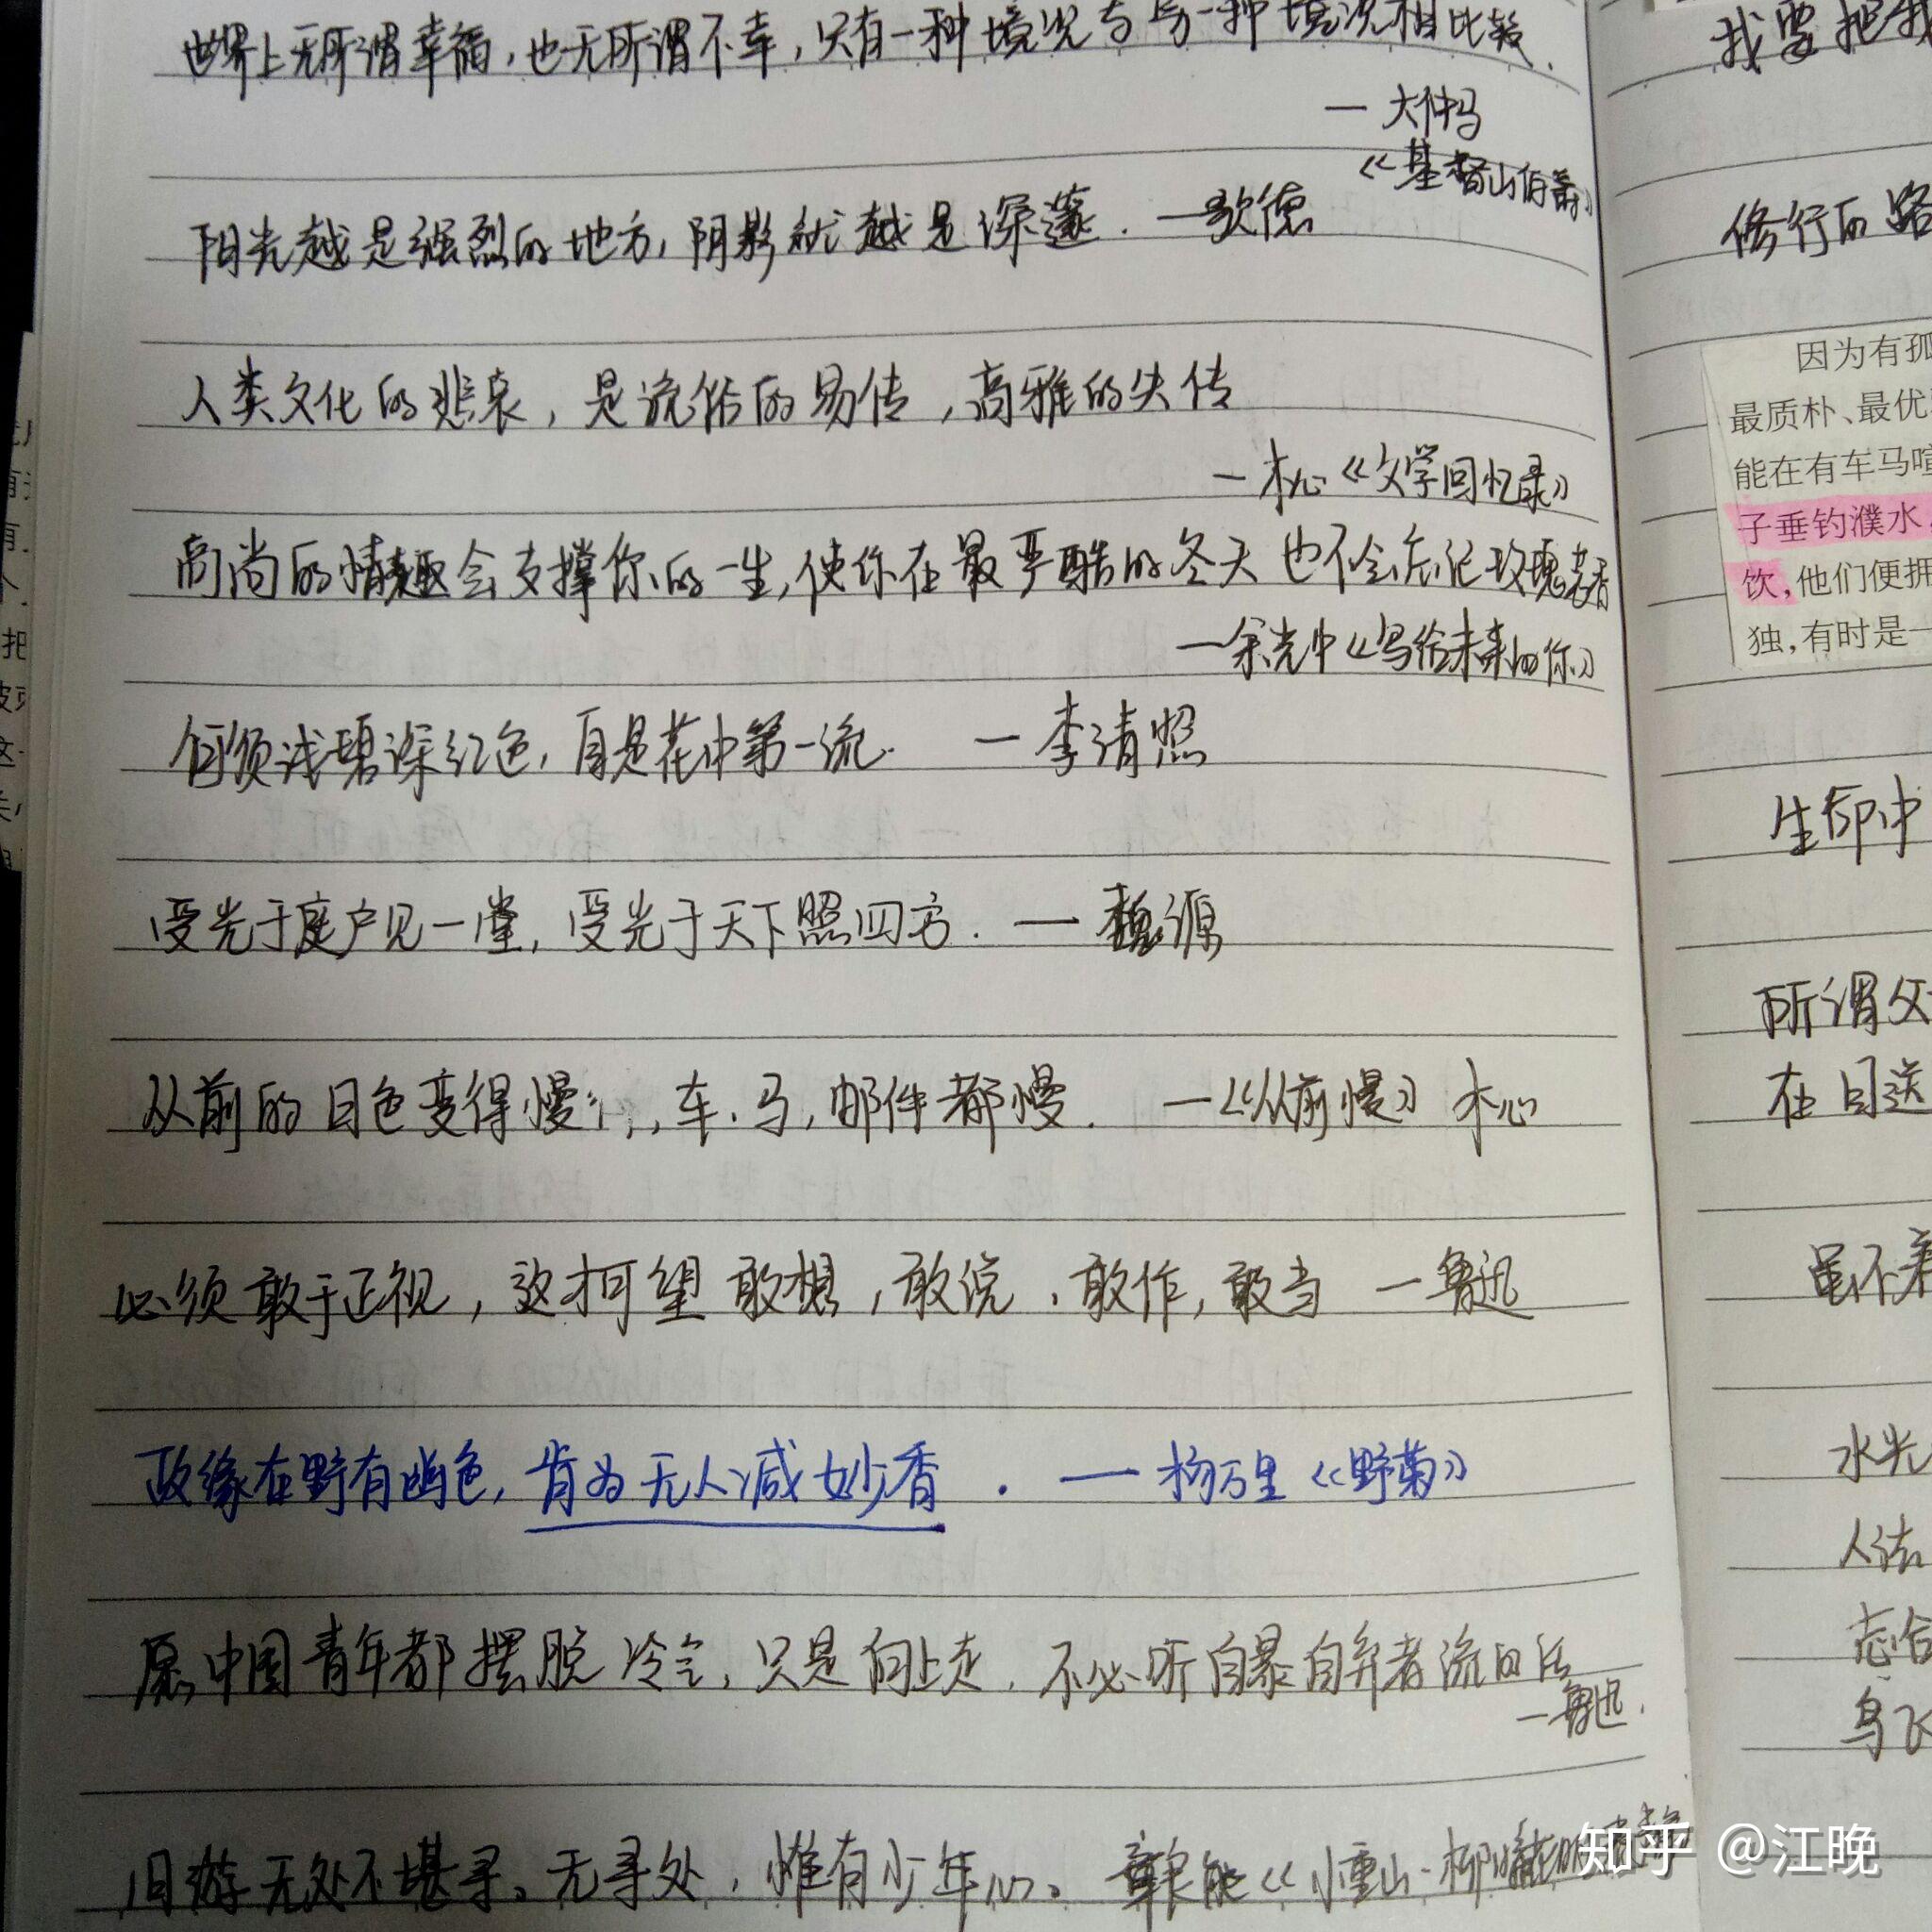 世界上无所谓幸福,也无所谓不幸,只有一种境况与另一种境况相比较.
— 大仲马
《基督山伯爵》
阳光越是强烈的地方,阴影就越是深邃. —歌德
人类文化的悲哀,是流俗的易传,高雅的失传
—木心《文学回忆录》
高尚的情趣会支撑你的一生,使你在最严酷的冬天也不会忘记玫瑰芳香
—余光中《写给未来的你》
何须浅碧深红色,自是花中第一流. —李清照
受光于庭户见一堂,受光于天下照四方. —魏源
从前的日色变得慢,,车.马,邮件都慢. —《从前慢》 木心
必须敢于正视,这才可望敢想,敢说,敢作,敢当 —鲁迅
政缘在野有幽色,肯为无人减妙香. —杨万里《野菊》
愿中国青年都摆脱冷气,只是向上走.不必听自暴自弃者流的话
—鲁迅.
旧游无处不堪寻。无寻处,惟有少年心。 章良能《小重山·柳暗花明
我要把我
修行的路
因为有孤
最质朴、最优
能在有车马喧
子垂钓濮水,
饮,他们便拥
独,有时是一
生命中
所谓父
在目送
虽不
水光
人法
志合
鸟飞
知乎 @江晚